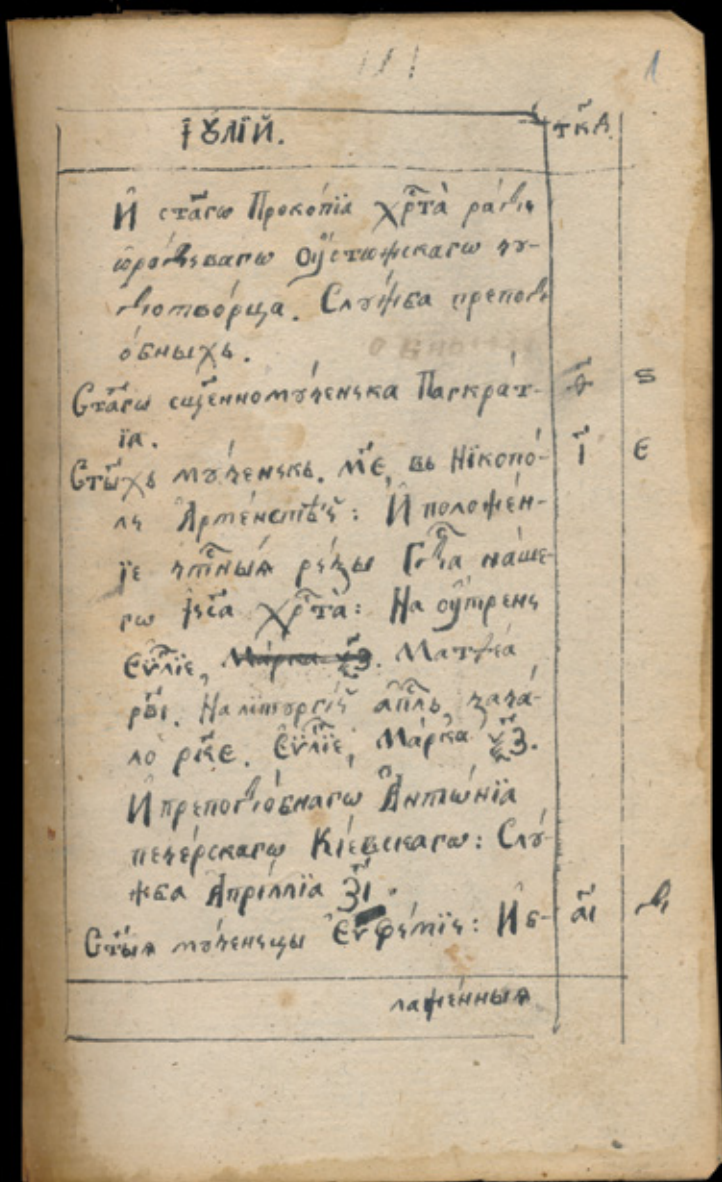 1
І҆ꙋ́лїй.
И҆ ст҃а́гѡ Проко́пїѧ хрⷭ҇та̀ ра́ди
ѡ҆ро́дивагѡ Оу҆стю́жскагѡ чу-
дотво́рца. Слу́жба препод-
о́бныхъ.
Ст҃а́гѡ сщ҃енному́ченика Панкра́т- ѳ҃ ѕ
їѧ.
Ст҃ы́хъ му́ченикъ. м҃е, въ Нїкопо́- і҃ є
ли А҆рме́нстѣй: И҆ положе́н-
їе чⷭ҇тны́ѧ ри́зы Гдⷭ҇а на́ше-
гѡ І҆и҃са хрⷭ҇та̀: На оу҆́трени
Єѵ҆́лїе, Ма́рка ѯ҃з. Матѳеа
На лїтургі́й а҆пⷭ҇лъ, зача́-
ло рк҃е. Єѵ҆́лїе, Ма́рка ѯ҃з.
И҆ преподо́бнагѡ А҆нтѡ́нїа
пече́рскагѡ Кі́евскагѡ: Слу́-
жба А҆прі́ллїа з҃і.
Ст҃ы́ѧ му́ченицы Єѵ҆фи́мїи: И҆ б- а҃і д
лаже́нныѧ